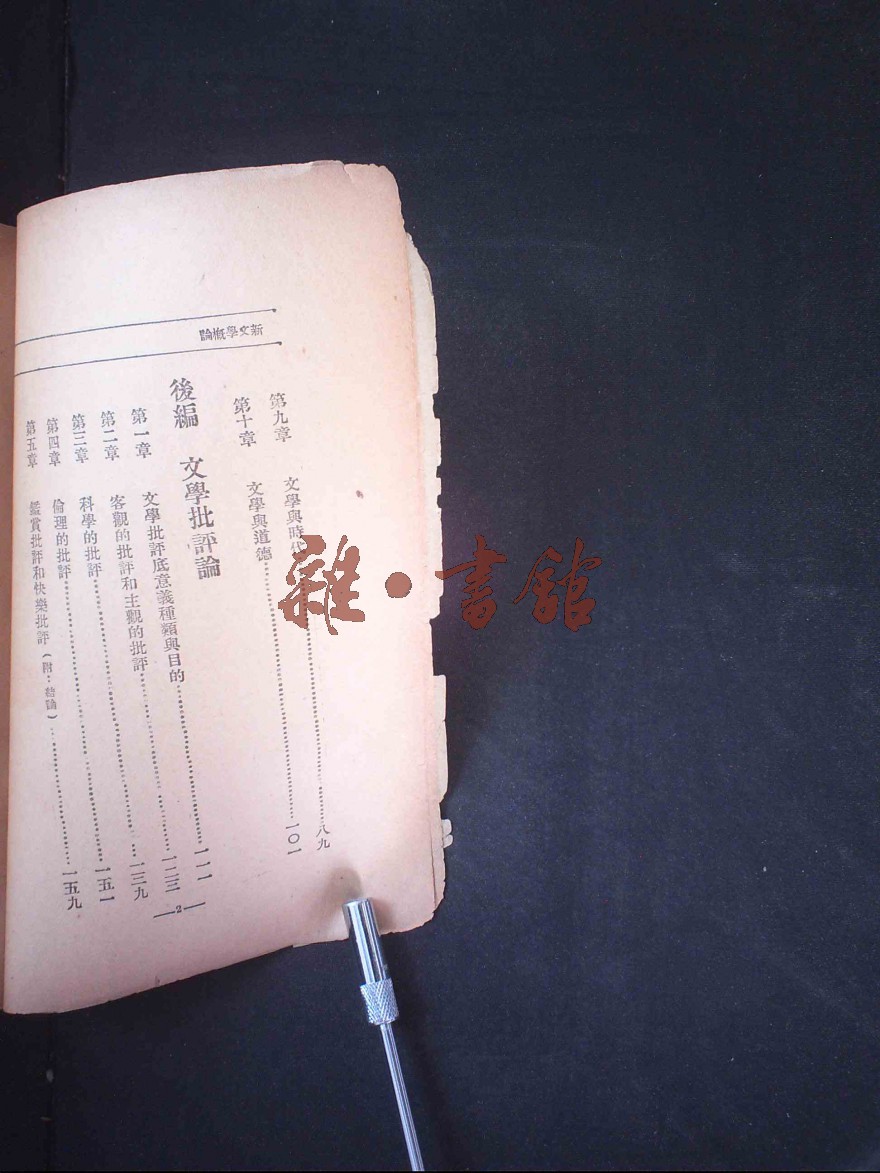 新文學概論
第九章 文學與時代 八九
第十章 文學與道德 一〇一
後編 文學批評論
第一章 文學批評底意義種類與目的 一一一
第二章 客觀的批評和主觀的批評 一二三
第三章 科學的批評 一三九
第四章 倫理的批評 一五一
第五章 鑑賞批評和快樂批評(附:結論) 一五九
—2—
雜·書館